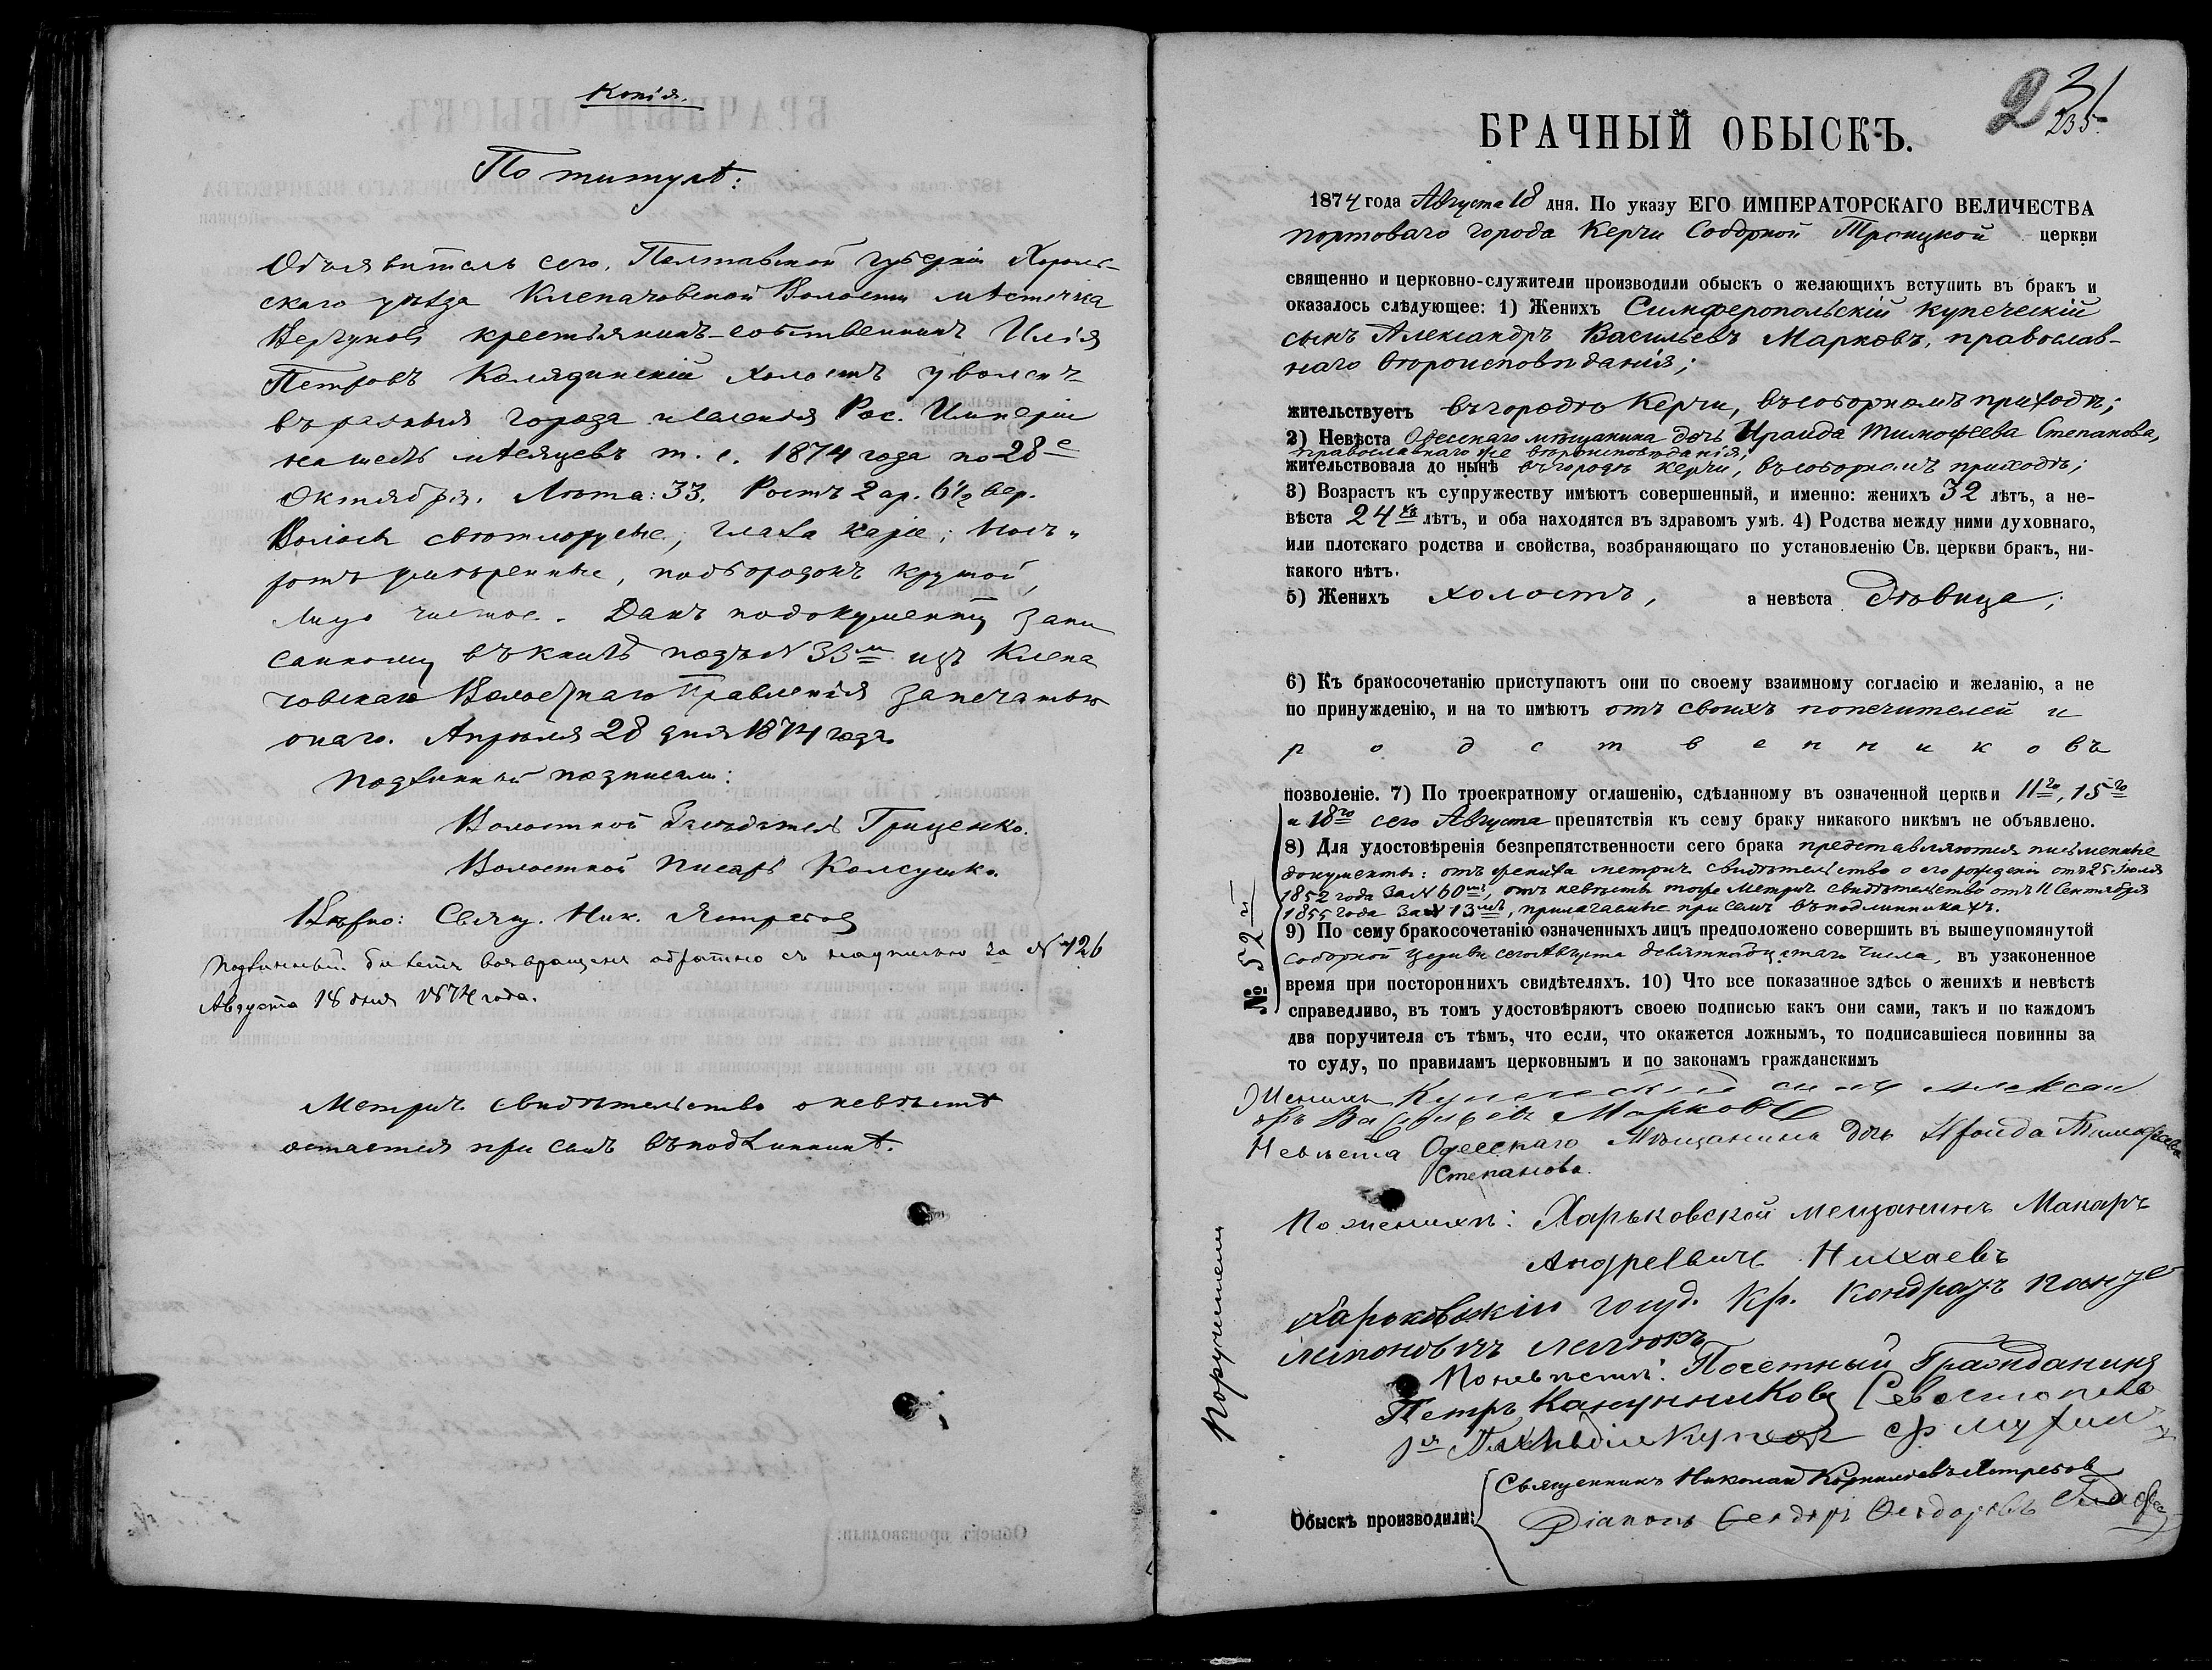 Копія.
По титулѣ:
Объявитель сего, Полтавской губерніи Хороль-
скаго уѣзда Клепачовской Волости мѣстечка
крестьянинъ-собственникъ Илія
Петровъ Колядинскій холостъ уволенъ
въ разныя города и селенія Рос. Имперіи
на шесть мѣсяцевъ т. е. 1874 года по 28 е
Октября. Лѣта: 33. Ростъ 2 ар. 6½ вер.
Волосы свѣтлорусые, глаза каріе, носъ,
ротъ умѣренные, подбородокъ круглой,
лицо чистое. Данъ по документу запи
санному въ книгѣ подъ № 33 м изъ Клепа
човскаго Волостнаго Правленія за печатью
онаго. Апрѣля 28 дня 1874 года.
Подлинный подписали:
Волостной Гриценко.
Волостной Писарь
Вѣрно: Свящ. Ник. Ястребов
Подлинный билетъ возвращенъ обратно съ надписью за № 426
Августа 18 дня 1874 года.
Метрич. свидѣтельство о невѣстѣ
остается при семъ въ подлинникѣ.
235
БРАЧНЫЙ ОБЫСКЪ.
1874 года Августа 18 дня. По указу ЕГО ИМПЕРАТОРСКАГО ВЕЛИЧЕСТВА
портоваго города Керчи Соборной Троицкой церкви
священно и церковно-служители производили обыскъ о желающихъ вступить въ бракъ и
оказалось слѣдующее: 1) Женихъ Симферопольскій купеческій
сынъ Александръ Васильевъ Марковъ, православ-
наго вѣроисповѣданія;
жительствуетъ въ городѣ Керчи, въ соборномъ приходѣ;
2) Невѣста Одесскаго мѣщанина дочь Ираида Тимофеева Степанова,
православнаго же вѣроисповѣданія;
жительствовала до нынѣ въ городѣ Керчи, въ соборномъ приходѣ;
3) Возрастъ къ супружеству имѣютъ совершенный, и именно: женихъ 32 лѣтъ, а не-
вѣста 24 хъ лѣтъ, и оба находятся въ здравомъ умѣ. 4) Родства между ними духовнаго,
или плотскаго родства и свойства, возбраняющаго по установленію Св. церкви бракъ, ни-
какого нѣтъ.
5) Женихъ холостъ, а невѣста дѣвица;
6) Къ бракосочетанію приступаютъ они по своему взаимному согласію и желанію, а не
по принужденію, и на то имѣютъ отъ своихъ попечителей и
родственниковъ
позволеніе. 7) По троекратному оглашенію, сдѣланному въ означенной церкви 11го, 15го
и 18го сего Августа препятствія къ сему браку никакого никѣмъ не объявлено.
8) Для удостовѣренія безпрепятственности сего брака представляются письменные
документы: отъ жениха метрич. свидѣтельство о его рожденіи отъ 25 Іюля
1852 года за № 60мъ, отъ невѣсты тоже Метрич. свидѣтельство отъ 11 Сентября
1855 года за № 13мъ, прилагаемые при семъ въ подлинникахъ.
9) По сему бракосочетанію означенныхъ лицъ предположено совершить въ вышеупомянутой
соборной церкви сего Августа девятнадцатаго числа, въ узаконенное
время при постороннихъ свидѣтеляхъ. 10) Что все показанное здѣсь о женихѣ и невѣстѣ
справедливо, въ томъ удостовѣряютъ своею подписью какъ они сами, такъ и по каждомъ
два поручителя съ тѣмъ, что если, что окажется ложнымъ, то подписавшіеся повинны за
то суду, по правиламъ церковнымъ и по законамъ гражданскимъ
№ 52 й
Женихъ Купеческій сынъ Алексан
дръ Васильевъ Марковъ
Невѣста Одесскаго Мѣщанина дочь Ираида Тимофеева
Степанова.
Поручители
По женихѣ: Харьковской мещанинъ Макаръ
Андреевичъ Нихаевъ
Харьковскій госуд. Кр. Кондратъ
По невѣстѣ: Почетный Гражданинъ
Петръ Канунниковъ
Священникъ Николай Корниліевъ Ястребовъ
Обыскъ производили:
Діаконъ Феодоръ Феодоровъ